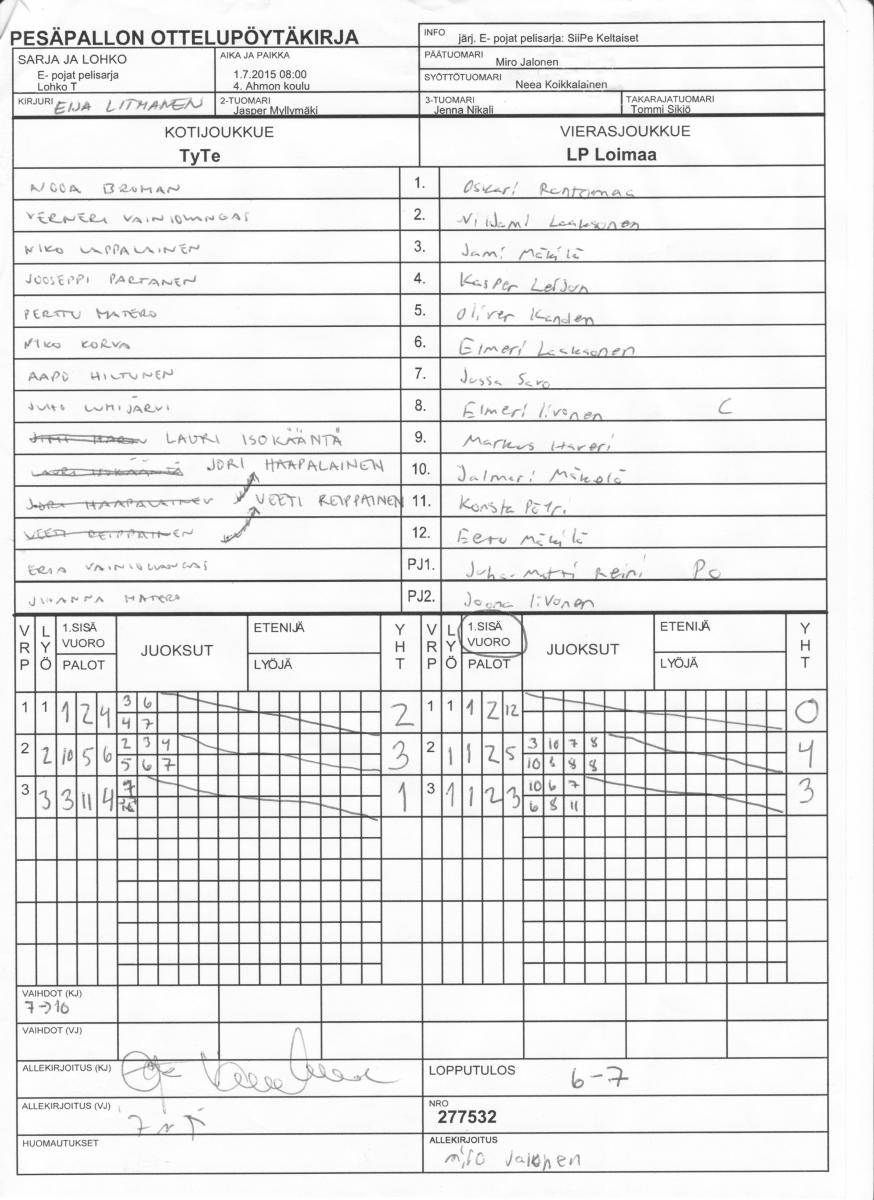 PESÄPALLON OTTELUPÖYTÄKIRJA
INFO järj. E- pojat pelisarja: SiiPe Keltaiset
SARJA JA LOHKO
E- pojat pelisarja
Lohko T
AIKA JA PAIKKA
1.7.2015 08:00
4. Ahmon koulu
PÄÄTUOMARI
Miro Jalonen
SYÖTTÖTUOMARI
Neea Koikkalainen
KIRJURI EIJA LITMANEN
2-TUOMARI
Jasper Myllymäki
3-TUOMARI
Jenna Nikali
TAKARAJATUOMARI
Tommi Sikiö
KOTIJOUKKUE
TyTe
VIERASJOUKKUE
LP Loimaa
NOOA BROMAN 1. Oskari Rantamaa
VERNERI VAINIONKANGAS 2. Viljami Laaksonen
NIKO LAPPALAINEN 3. Jami Mäkilä
JOOSEPPI PARTANEN 4. Kasper
PERTTU MATERO 5. Oliver Kanden
NIKO KORVA 6. Elmeri Laaksonen
AAPO HILTUNEN 7. Jussa Saro
JUHO LUMIJÄRVI 8. Elmeri Iivonen C
LAURI ISOKÄÄNTÄ 9. Markus Haveri
JORI HAAPALAINEN 10. Jalmari Mäkelä
JORI HAAPALAINEN VEETI REIPPAINEN 11. Konsta Pötri
VEETI REIPPAINEN 12. Eeru Mäkilä
PJ1. Juha-Matti Reini PO
JOHANNA MATERO PJ2. Joona Iivonen
VRP LYÖ 1.SISÄ VUORO PALOT JUOKSUT ETENIJÄ LYÖJÄ YHT VRP LYÖ 1.SISÄ VUORO PALOT JUOKSUT ETENIJÄ LYÖJÄ YHT
1 1 1 2 4 3 6 2 1 1 1 2 12 0
4 7
2 2 10 5 6 2 3 4 3 2 1 1 2 5 3 10 7 8 4
5 6 7 10 8 8 8
3 3 3 11 4 1 3 1 1 2 3 10 6 7 3
6 8 11
VAIHDOT (KJ)
7→10
VAIHDOT (VJ)
ALLEKIRJOITUS (KJ)
LOPPUTULOS 6-7
ALLEKIRJOITUS (VJ)
NRO
277532
HUOMAUTUKSET
ALLEKIRJOITUS
Miro Jalonen